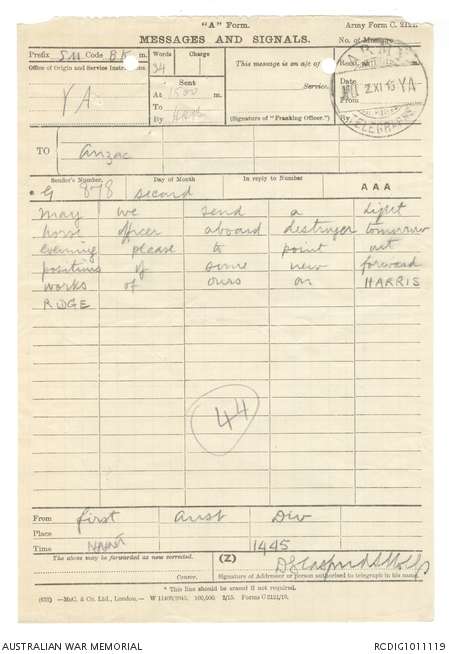 "A" Form.
Army Form C. 2121.
MESSAGES AND SIGNALS.
No. of Message
Prefix SM Code BK m.
Words
Charge
This message is on a/c of
Office of Origin and Service
34
Sent
Service.
Date
YA
At 1500 m.
From
To
By
(Signature of "Franking Officer.")
By
ARMY
2 XI 15 YA
TELEGRAPHS
TO
Anzac
Sender's Number.
Day of Month
In reply to Number
AAA
* G 878
second
may we send a light
horse officer aboard destroyer tomorrow
evening please to point out
positions of some new forward
works of ours on HARRIS
RIDGE
44
From
first Aust Div
Place
Time
1445
The above may be forwarded as now corrected.
(Z)
Censor.
Signature of Addressor or person authorised to telegraph in his name.
* This line should be erased if not required.
McC. & Co. Ltd., London.
Forms C 2121/10.
AUSTRALIAN WAR MEMORIAL
RCDIG1011119